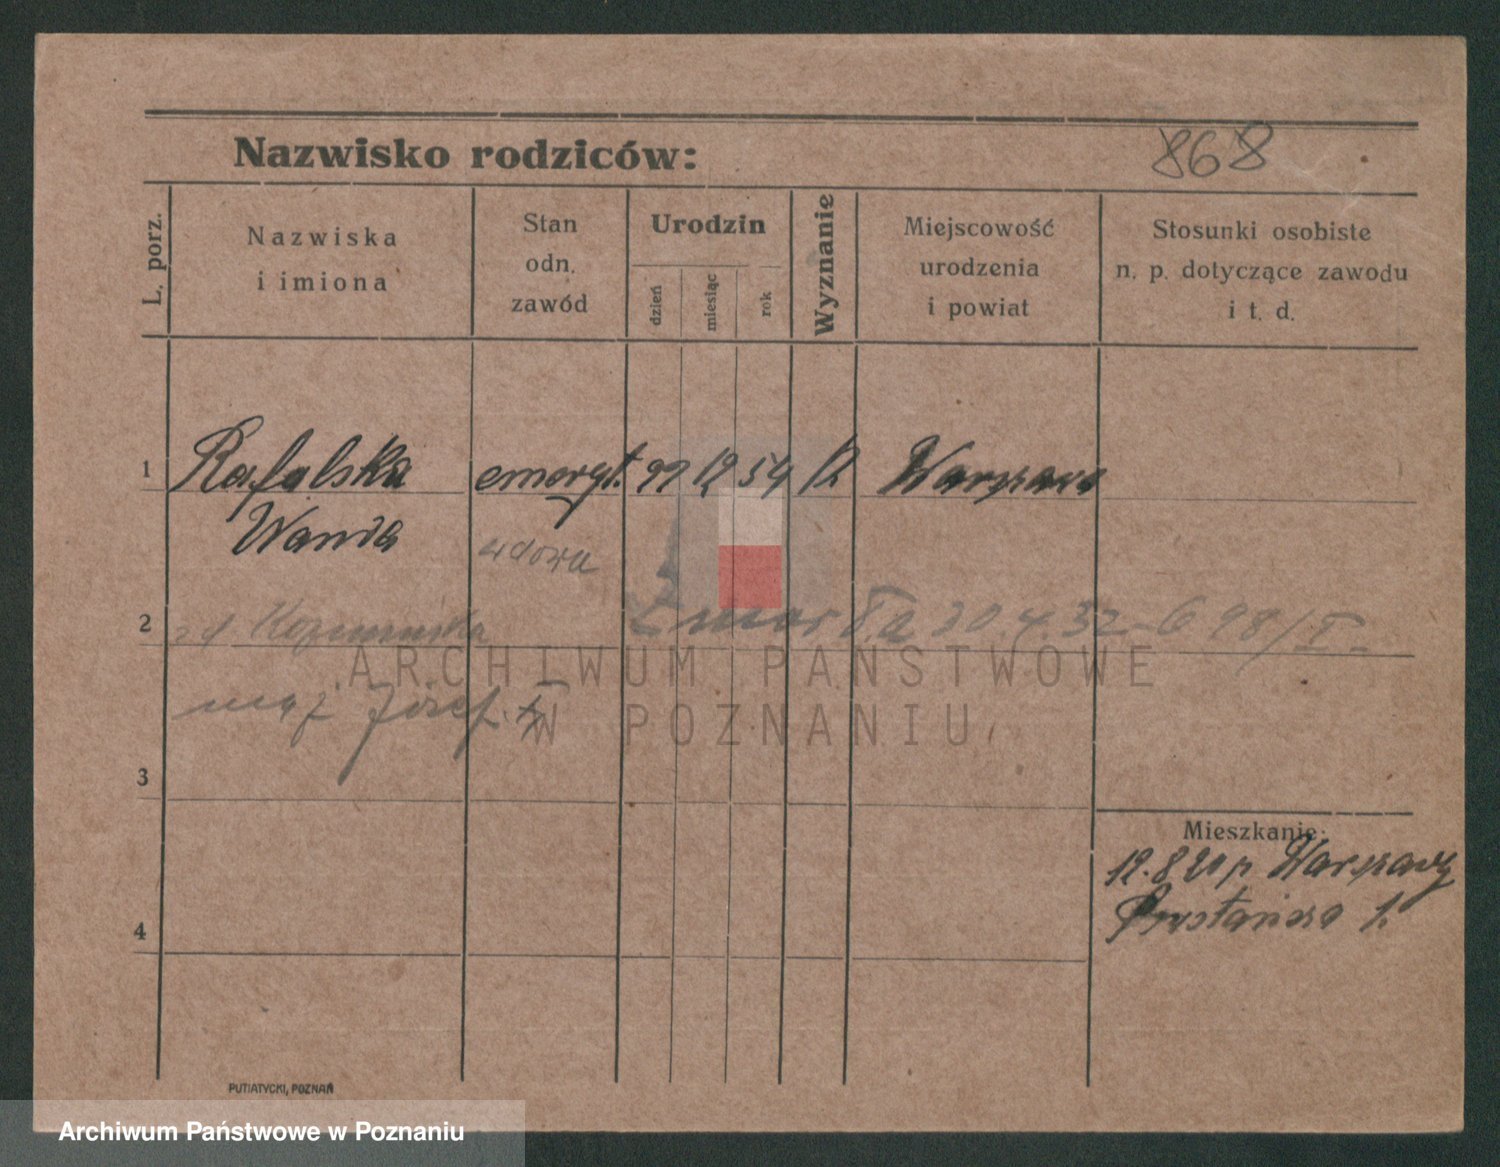 Nazwisko rodziców:
868
L. porz.
Nazwiska
i imiona
Stan
odn.
zawód
Urodzin
dzień
miesiąc
rok
Wyznanie
Miejscowość
urodzenia
i powiat
Stosunki osobiste
n. p. dotyczące zawodu
i t. d.
1 Rafalska emeryt. 12 54 Warszawa
Wanda
wdowa
2 zd. Koźmińska Zmar 30.4.32 698/I
mąż Józef
ARCHIWUM PAŃSTWOWE
W POZNANIU
3
Mieszkanie:
12.8 Warszawy
4 1.
PUTIATYCKI, POZNAŃ
Archiwum Państwowe w Poznaniu